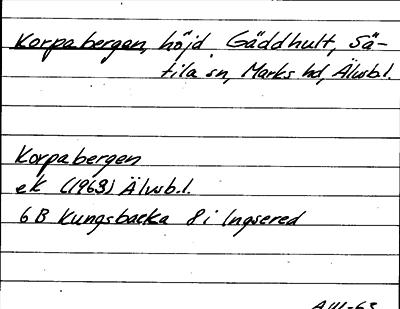 Korpabergen, höjd Gäddhult, Sä-
tila sn, Marks hd, Älvsb.l.
Korpabergen
ek (1963) Älvsb.l.
6 B Kungsbacka 8 i Ingsered